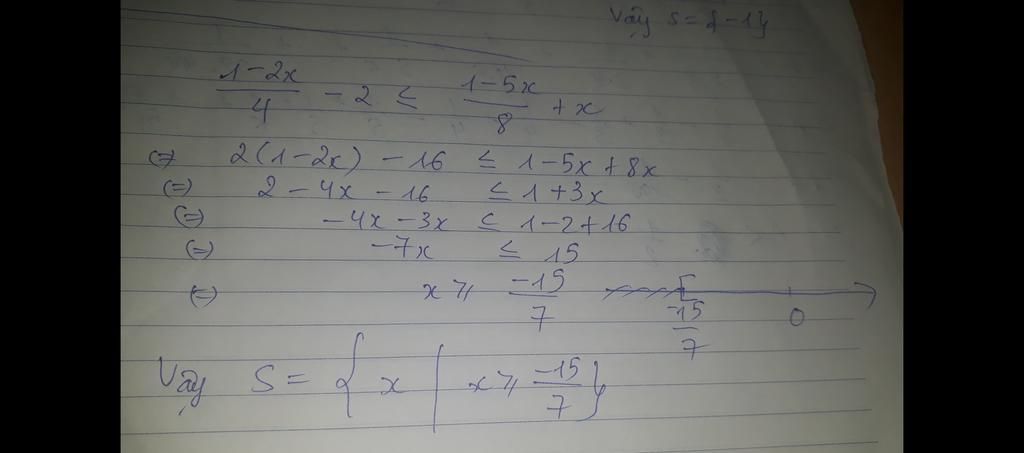 Vậy S = {-1}
\frac{1-2x}{4} - 2 ≤ \frac{1-5x}{8} + x
(=) 2(1-2x) - 16 ≤ 1-5x+8x
(=) 2 - 4x - 16 ≤ 1+3x
(=) -4x - 3x ≤ 1-2+16
(=) -7x ≤ 15
(=) x ⩾ \frac{-15}{7} [ \frac{-15}{7} 0
Vậy S = { x | x ⩾ \frac{-15}{7} }